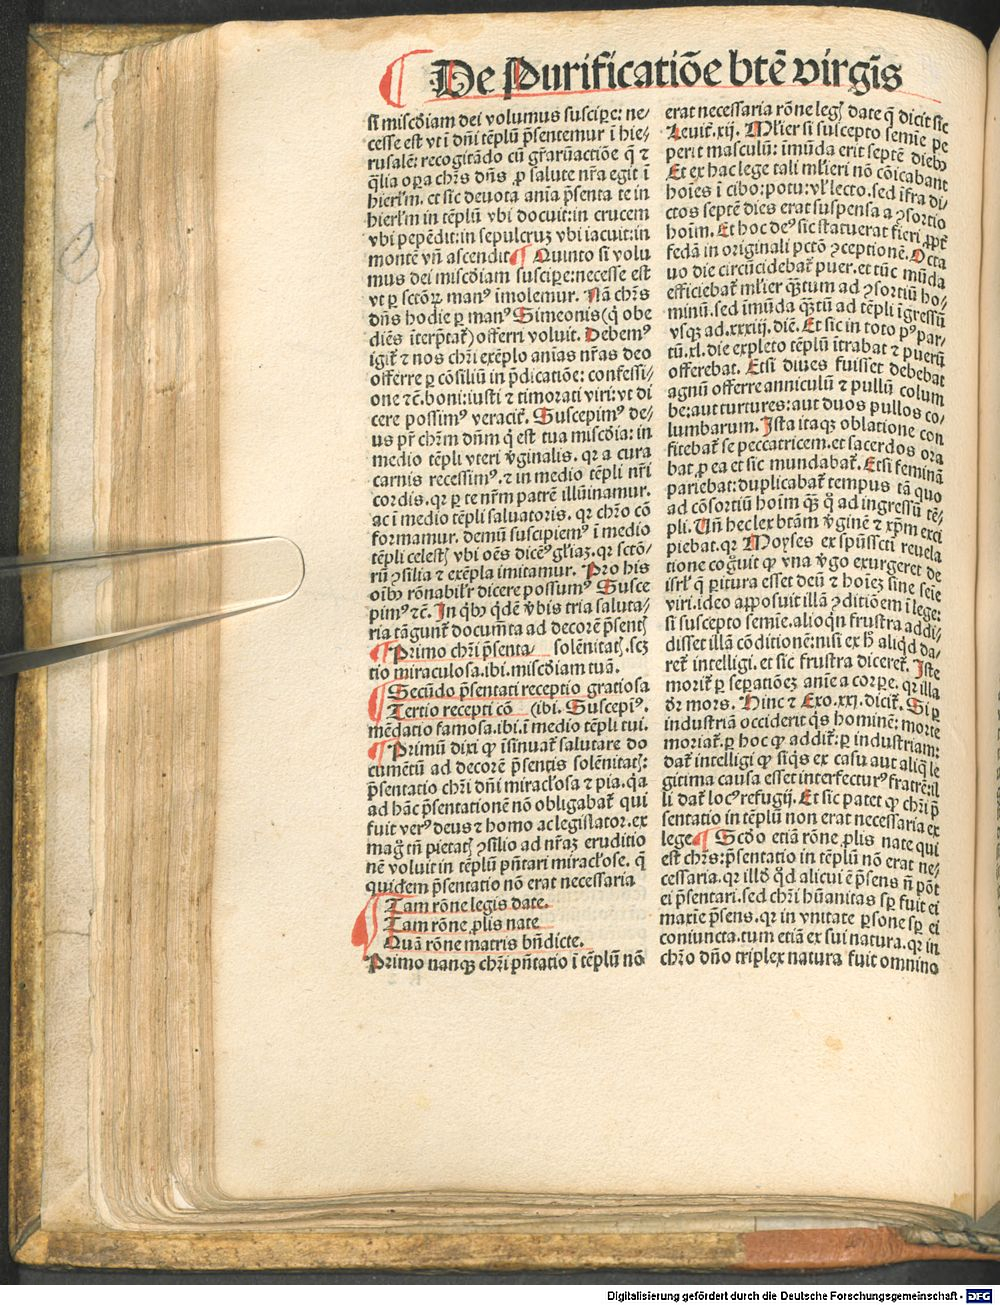 De Purificatiõe btẽ virgĩs
si miscðiam dei volumus suscipe: ne-
cesse est vt ĩ dñi tẽplũ p̃sentemur ĩ hie-
rusalẽ: recogitãdo cũ gr̃aruactiõe q̃ ⁊
q̃lia oꝑa chr̃s dñs ꝓ salute nr̃a egit ĩ
hierl'm. et sic deuota anĩa p̃senta te in
hierl'm in tẽplũ vbi docuit: in crucem
vbi pepẽdit: in sepulcruꝫ vbi iacuit: in
montẽ vñ ascendit ¶ Quinto si volu
mus dei miscðiam suscipe: necesse est
vt ꝑ sctõꝝ manꝰ ĩmolemur. Nã chr̃s
dñs hodie ꝑ manꝰ Simeonis (q̃ obe
diẽs ĩterp̃tat̃) offerri voluit. Debemꝰ
igit̃ ⁊ nos chr̃i exẽplo anĩas nr̃as deo
offerre ꝑ cõsiliũ in p̃dicatiõe: confessi-
one ⁊c̃. boni: iusti ⁊ timorati viri: vt di
cere possimꝰ veracit̃. Suscepimꝰ de-
us pr̃ chr̃m dñm q̇ est tua miscðia: in
medio tẽpli vteri v̓ginalis. qꝛ a cura
carnis recessimꝰ. ⁊ in medio tẽpli nr̃i
cordis. qꝛ ꝑ te nr̃m patrẽ illũinamur.
ac ĩ medio tẽpli saluatoris. qꝛ chr̃o cõ
formamur. demũ suscipiemꝰ ĩ medio
tẽpli celestꝭ vbi oẽs dicẽꝰ gl'iaꝫ. qꝛ sctõ-
rũ ꝯsilia ⁊ exẽpla imitamur. Pro his
oĩbꝰ rõnabilr̃ dicere possumꝰ Susce
pimꝰ ⁊c̃. In q̇bꝰ q̇dẽ v̓bis tria saluta-
ria tãgunt̃ documẽta ad decorẽ p̃sentꝭ
¶ Primo chr̃i p̃senta- solẽnitatꝭ. scꝫ
tio miraculosa. ibi. miscðiam tuã.
¶ Secũdo p̃sentati receptio gratiosa
Tertio recepti cõ (ibi. Suscepiꝰ.
mẽdatio famosa. ibi. ĩ medio tẽpli tui.
¶ Primũ dixi ꝙ ĩsinuat̃ salutare do
cumẽtũ ad decorẽ p̃sentis solẽnitatꝭ:
p̃sentatio chr̃i dñi miracl'osa ⁊ pia. q̃a
ad hãc p̃sentationẽ nõ obligabat̃ qui
fuit verꝰ deus ⁊ homo ac legislator. ex
mag̃ tñ pietatꝭ ꝯsilio ad nr̃aꝫ eruditio
nẽ voluit in tẽplũ pñtari miracl'ose. q̃
quidem p̃sentatio nõ erat necessaria
¶ Tam rõne legis date.
Tam rõne ꝓlis nate
Quã rõne matris bñdicte.
Primo nanqꝫ chr̃i pñtatio ĩ tẽplũ nõ
erat necessaria rõne legꝭ date q̃ dicit sic
Leuit̃. xij. Ml'ier si suscepto semĩe pe
perit masculũ: ĩmũda erit septẽ diebꝰ
Et ex hac lege tali ml'ieri nõ cõicabant
hoĩes ĩ cibo: potu: vl' lecto. sed ĩfra di-
ctos septẽ dies erat suspensa a ꝯsortio
hoĩm. Et hoc deꝰ sic statuerat fieri ꝓpt̃
fedã in originali pctõ ꝯceptionẽ. Octa
uo die circũcidebat̃ puer. et tũc mũda
efficiebat̃ ml'ier q̃tum ad ꝯsortiũ ho-
minũ. sed ĩmũda q̃tũ ad tẽpli ĩgressũ
vsqꝫ ad. xxxiij. diẽ. Et sic in toto pꝰ par-
tũ. xl. die expleto tẽplũ ĩtrabat ⁊ puerũ
offerebat. Etsi diues fuisset debebat
agnũ offerre anniculũ ⁊ pullũ colum
be: aut turtures: aut duos pullos co-
lumbarum. Ista itaqꝫ oblatione con
fitebat̃ se peccatricem. et sacerdos ora
bat ꝓ ea et sic mundabat̃. Etsi feminã
pariebat: duplicabat̃ tempus tã quo
ad cõsortiũ hoĩm qꝫ q̊ ad ingressũ tẽ-
pli. Uñ hec lex btãm v̓ginẽ ⁊ xp̃m exci
piebat. qꝛ Moyses ex spũssctĩ reuela
tione cog̃uit ꝙ vna v̓go exurgeret de
isrl' q̃ paritura esset deũ ⁊ hoĩeꝫ sine seĩe
viri. ideo apposuit illã ꝯditiõem ĩ lege:
si suscepto semĩe. alioq̇n frustra addi-
disset illã cõditionẽ: nisi ex h̊ aliq̇d da-
ret̃ intelligi. et sic frustra diceret̃. Iste
morit̃ ꝑ seꝑationẽꝫ anĩe a corꝑe. qꝛ illa
ðr mors. Hinc ⁊ Exo. xxj. dicit̃. Si ꝑ
industriã occiderit q̇s hominẽ: morte
moriat̃. ꝑ hoc ꝙ addit̃: ꝑ industriam:
dat̃ intelligi ꝙ siq̇s ex casu aut aliq̃ le
gitima causa esset interfecturꝰ fratrẽ: il
li dat̃ locꝰ refugij. Et sic patet ꝙ chr̃i p̃
sentatio in tẽplũ non erat necessaria ex
lege. ¶ Scðo etiã rõne ꝓlis nate qui
est chr̃s: p̃sentatio in tẽplũ nõ erat ne-
cessaria. qꝛ illð q̊d alicui ẽ p̃sens ñ põt
ei p̃sentari. sed chr̃i hũanitas sꝑ fuit ei
maxĩe p̃sens. qꝛ in vnitate ꝑsone sꝑ ei
coniuncta. tum etiã ex sui natura. qꝛ in
chr̃o dño triplex natura fuit omnino
Digitalisierung gefördert durch die Deutsche Forschungsgemeinschaft - DFG